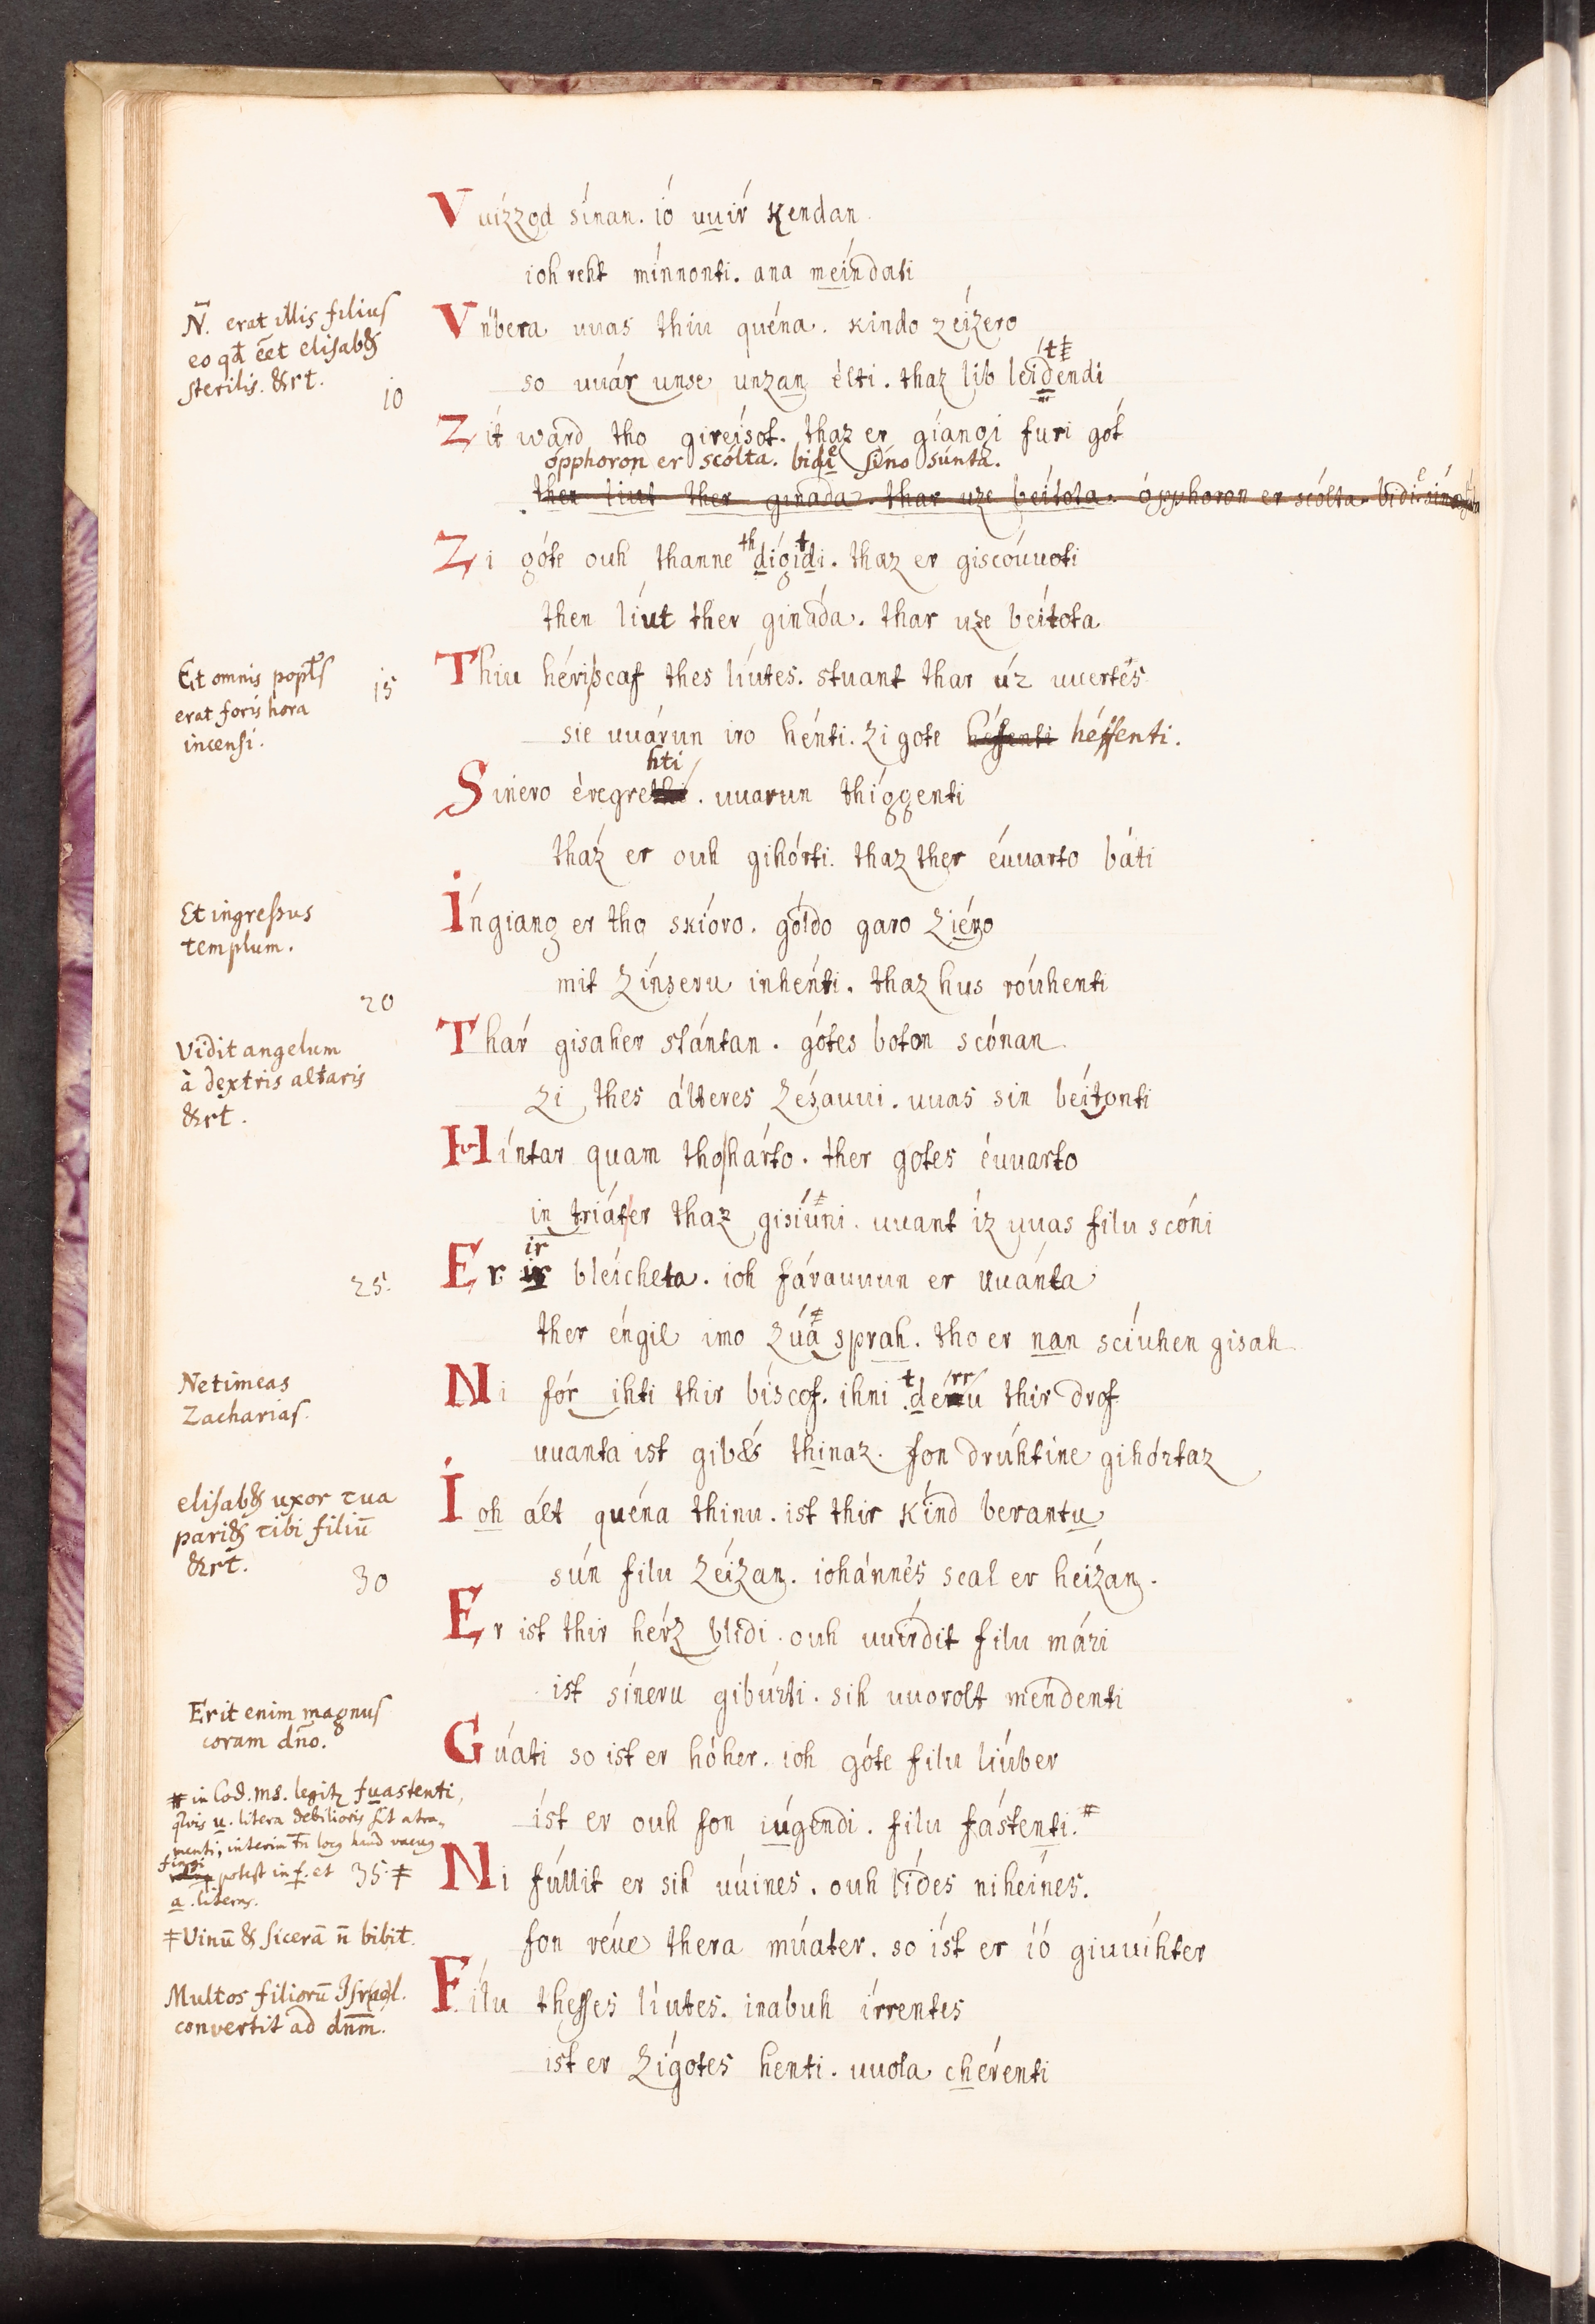 Vuízzod sínan. ió uuír kendan.
ioh reht mínnonti. ana meíndati
N̄. erat illis filius
eo qđ eēt elisab&
sterilis. &rt.
10
Vńbera uuas thiu quéna. kindo zeízero
so uuár unse unzan élti. thaz lib leidendi
Zít ward tho gireísot. thaz er gíangi furi gót
ópphoron er scólta. bidie síno súnta.
then liut ther ginada. thar uze beítota. ópphoron er scólta bidie síno
Zi góte ouh thanne thdígidi. thaz er giscóuuoti
then líut ther gináda. thar uze beítota
Et omnis popl̄s
erat foris hora
incensi.
15
Thiu hériscaf thes líutes. stuant thar úz uuertés
sie uuárun iro hénti. zi gote héssenti héssenti.
hti
Sínero éregrethi. uuarun thíggenti
tház er ouh gihórti. thaz ther éuuarto báti
Et ingressus
templum.
20
Íngiang er tho skíoro. góldo garo ziéro
mit zínseru inhénti. thaz hus róuhenti
Vidit angelum
à dextris altaris
&rt.
Thár gisaher stántan. gótes boton scónan
zi thes álteres zésauui. uuas sin beítonti
Híntar quam tho hárto. ther gotes éuuarto
in tríater tház gisíuni. uuant íz uuas filu scóni
25.
ir
Er ir bleícheta. ioh fárauuun er uuánta
ther éngil imo zúa sprah. tho er nan scíuhen gisah
Ne timeas
Zacharias.
Ni fór ihti thir bíscof. ihni derru thir drof
uuanta ist gib&́ thinaz. fon drúhtine gihórtaz
elisab& uxor tua
pari& tibi filiū
&rt.
30
Íoh ált quéna thinu. ist thir kínd berantu
sún filu zéizan. iohánnés scal er heízan.
Er ist thir hérz blidi. ouh uuírdit filu mári
ist síneru gibúrti. sih uuorolt méndenti
Erit enim magnus
coram dn̄o.
Gúati so ist er hóher. ioh góte filu líuber
íst er ouh fon iúgendi. filu fástenti.#
# in Cod. ms. legitr fuastenti,
qvis u. litera debilioris sit atra-
menti; interim
fingi potest in f. et
a. literas.
35.
Ni fúllit er sih uúines. ouh lídes nihéines.
fon réue thera múater. so íst er ió giuuíhter
Vinū & sicerā n̄ bibit.
Multos filiorū Israel.
convertit ad dn̄m.
Fílu thesses líutes. inabuh írrentes
ist er zígotes henti. uuola chérenti